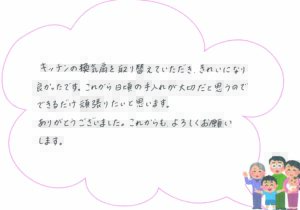 キッチンの換気扇を取り替えていただき、きれいになり
良かったです。これから日頃の手入れが大切だと思うので
できるだけ頑張りたいと思います。
ありがとうございました。これからも、よろしくお願い
します。